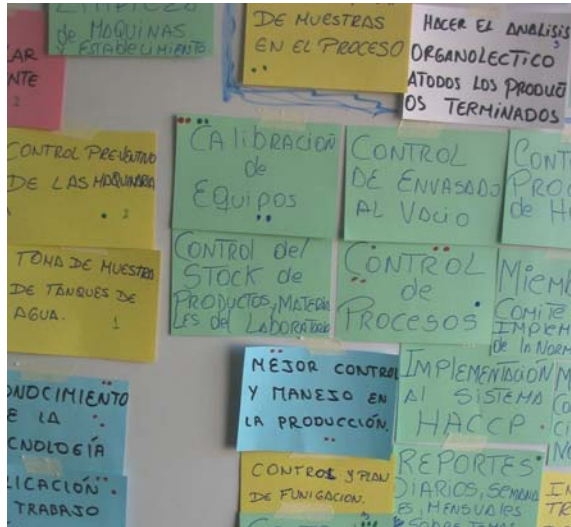 LIMPIEZA
de MAQUINAS
Y ESTABLECIMIENTO
DE MUESTRAS
EN EL PROCESO
HACER EL ANALISIS
ORGANOLECTICO
ATODOS LOS PRODUCT
OS TERMINADOS
AR
NTE
2
CONTROL PREVENTIVO
DE LAS MAQUINARIA
2
CALIBRACION
de
Equipos
CONTROL
DE ENVASADO
AL VACIO
CONT
PROC
de H
TOMA DE MUESTRA
DE TANQUES DE
AGUA.
1
CONTROL del
STOCK de
PRODUCTOS, MATERIA
LES del LABORATORIO
CONTROL
de
PROCESOS
MIEMB
COMITE
IMPLEM
de la NORM
NOCIMIENTO
E LA
CNOLOGÍA
MEJOR CONTROL
Y MANEJO EN
LA PRODUCCIÓN.
IMPLEMENTACION
Al SISTEMA
HACCP
LICACIÓN
TRABAJO
CONTROL Y PLAN
DE FUNIGACION.
REPORTES
DIARIOS, SEMANA
ES, MENSUALES